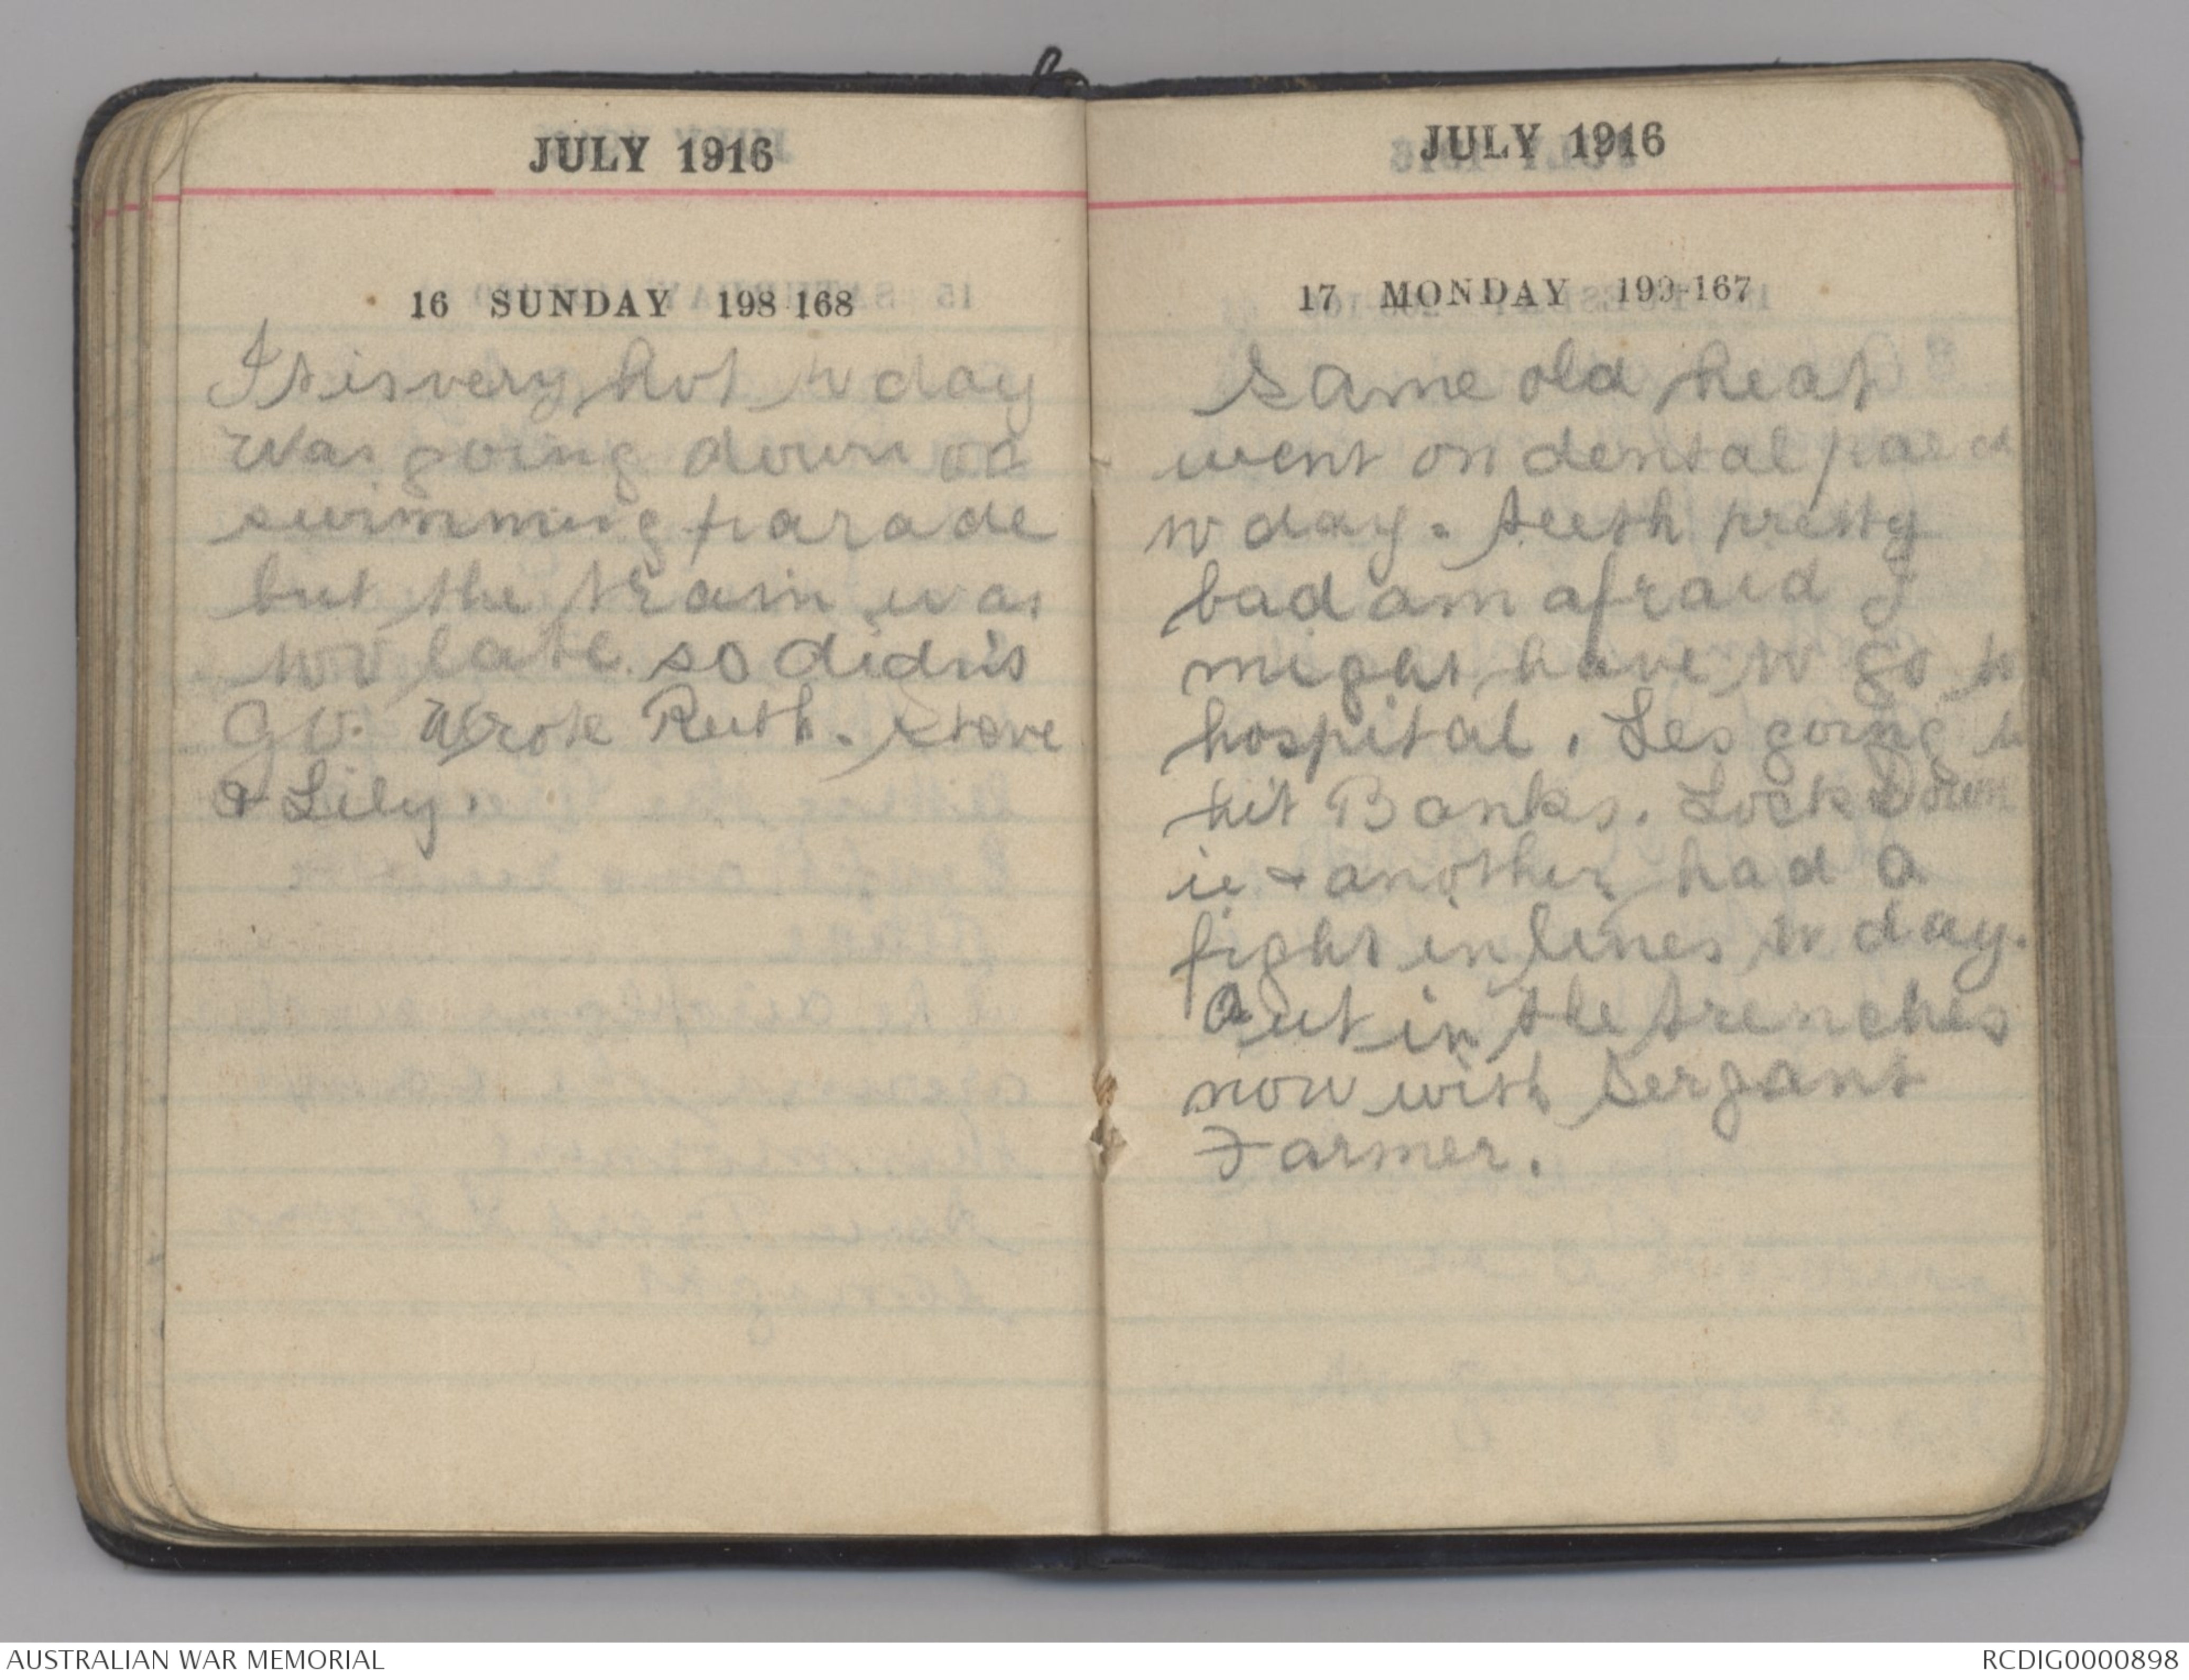 JULY 1916
16 SUNDAY 198 168
It is very hot to day
Was going down on
swimming parade
but the train was
too late so didn't
go. Wrote Ruth. Steve
& Lily.
JULY 1916
17 MONDAY 199-167
Same old heat
went on dental parad
to day. teeth pretty
bad am afraid I
might have to go to
hospital. Les going to
hit Banks. Lock Down
ie & another had a
fight in lines to day.
Out in the trenches
now with Sergant
Farmer.
AUSTRALIAN WAR MEMORIAL
RCDIG0000898